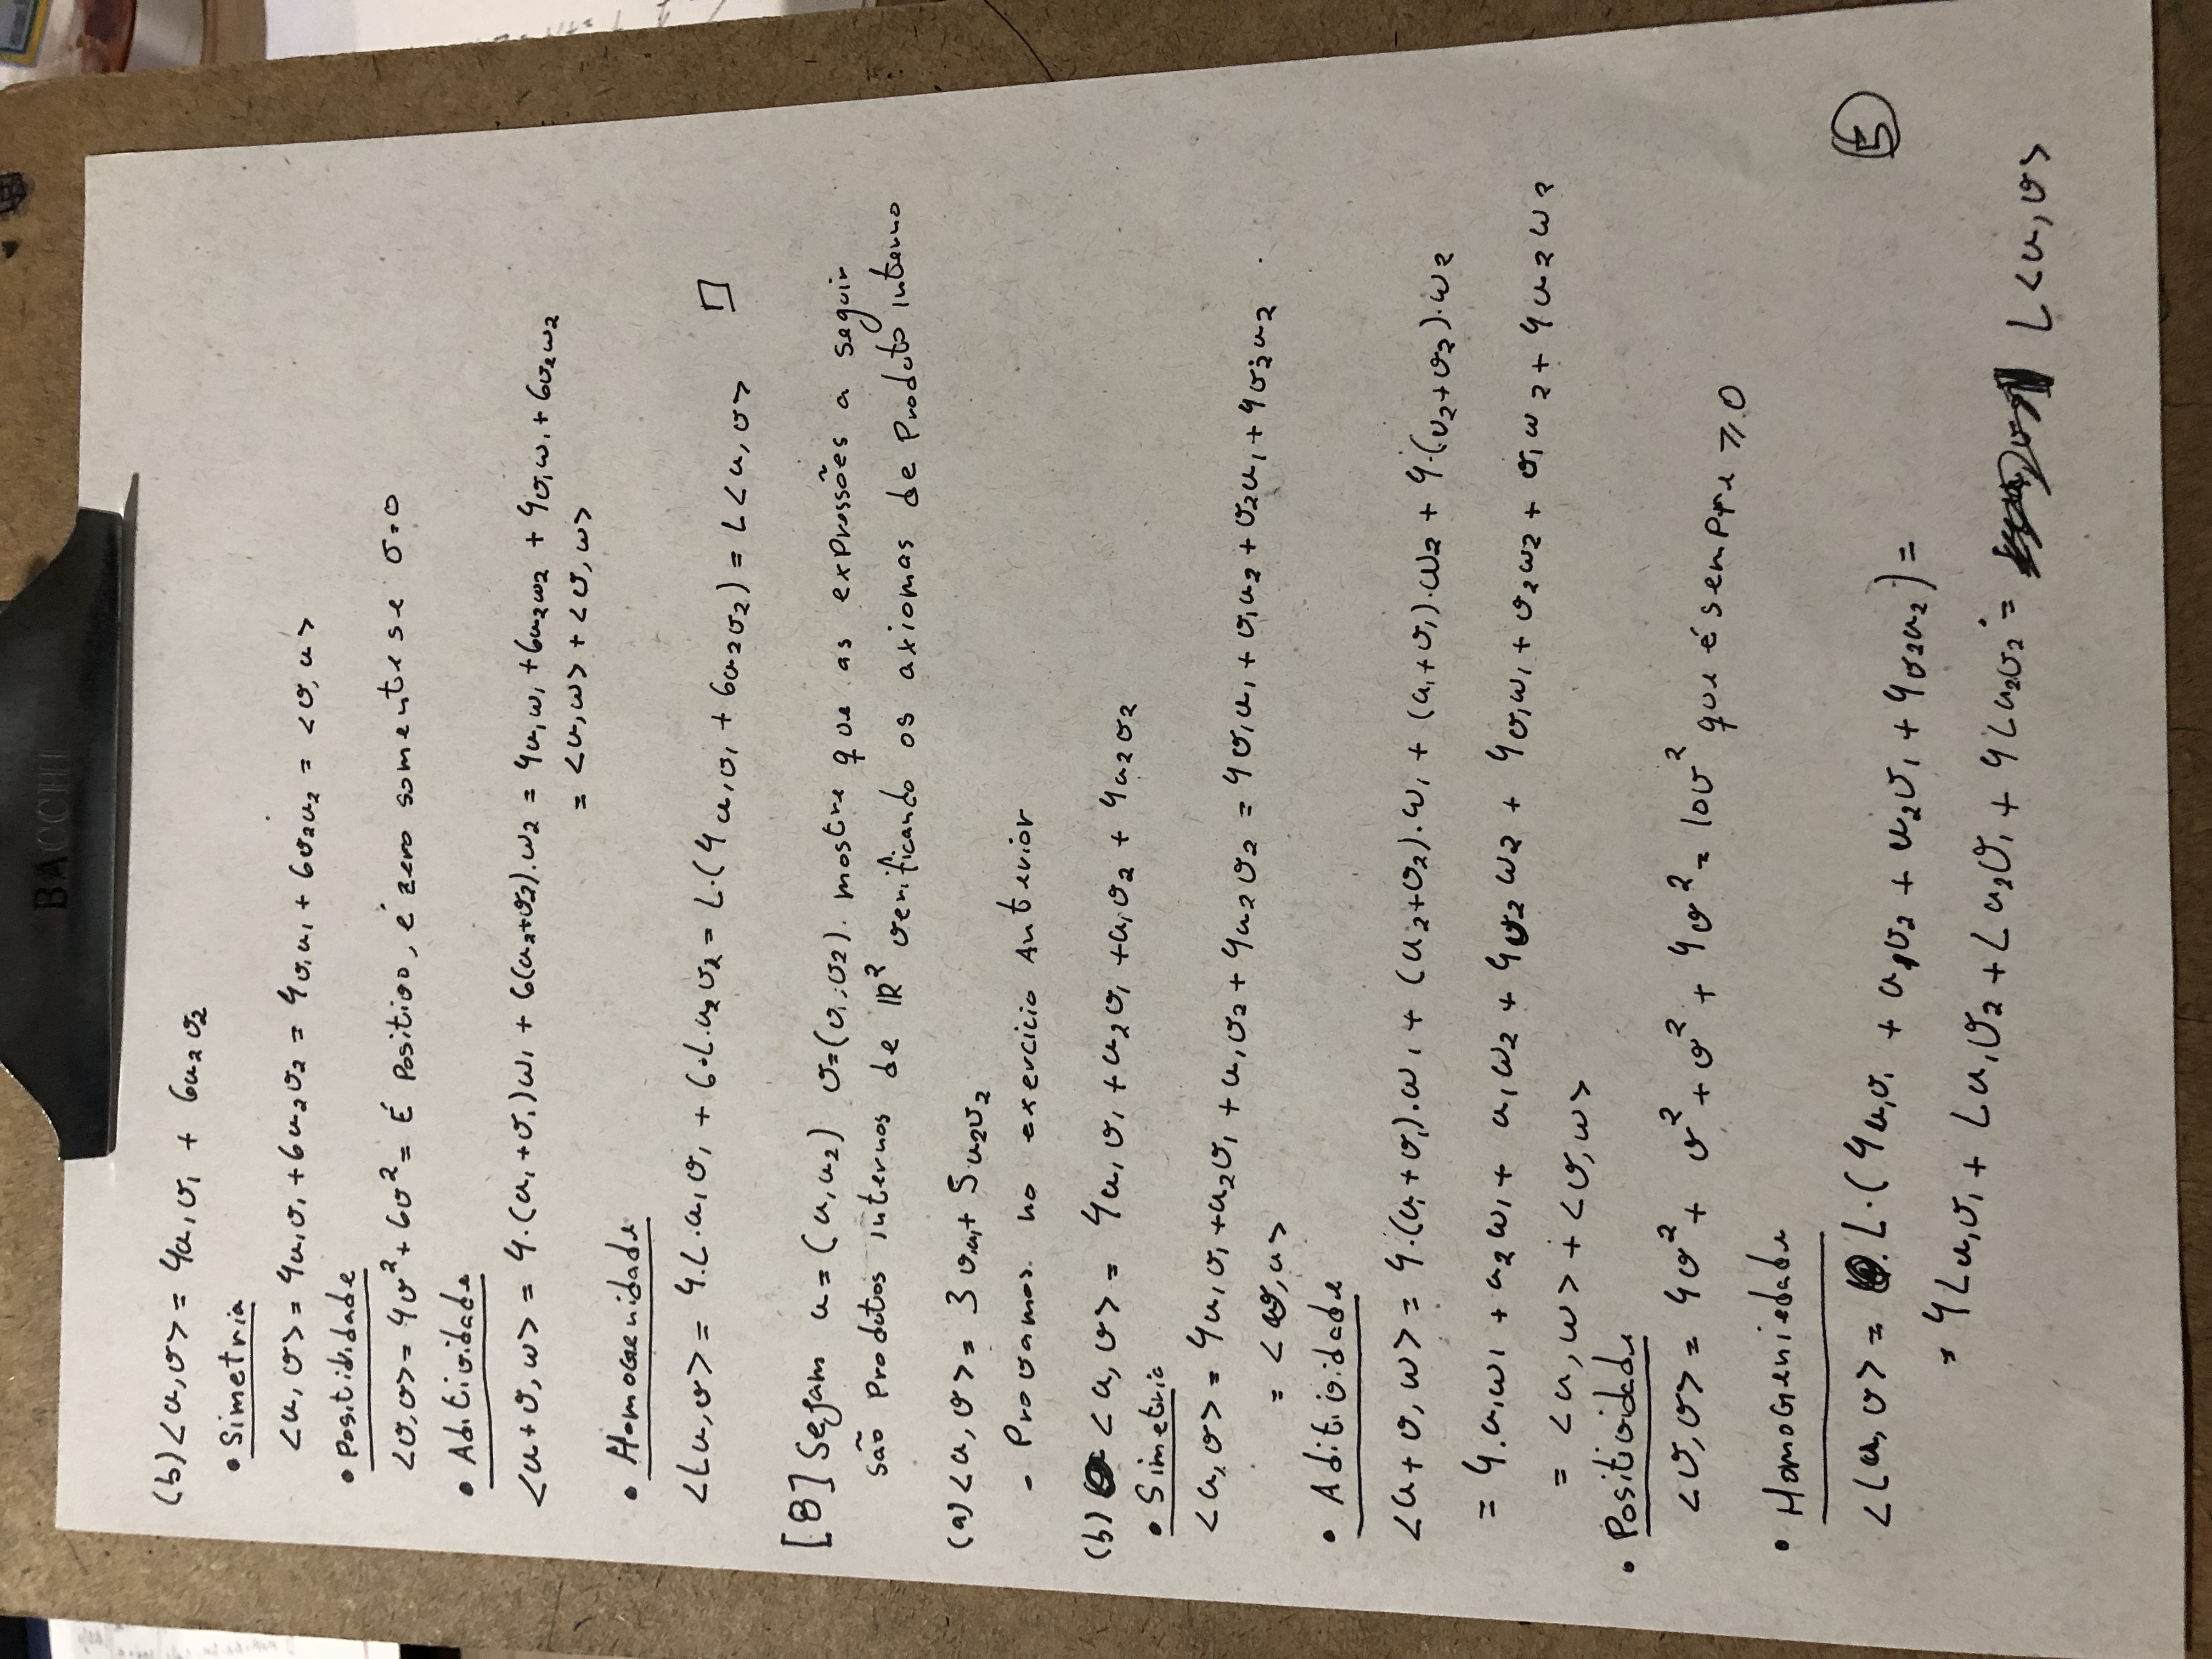 BACCHI
(b) <u,v> = 4u₁v₁ + 6u₂v₂
• Simetria
<u,v> = 4u₁v₁ + 6u₂v₂ = 4v₁u₁ + 6v₂u₂ = <v,u>
• Positividade
<v,v> = 4v² + 6v² = É Positivo, é zero somente se v=0
• Aditividade
<u+v,w> = 4·(u₁+v₁)w₁ + 6(u₂+v₂)·w₂ = 4u₁w₁ + 6u₂w₂ + 4v₁w₁ + 6v₂w₂
= <u,w> + <v,w>
• Homogenidade
<Lu,v> = 4·L·u₁v₁ + 6·L·u₂v₂ = L·(4u₁v₁ + 6u₂v₂) = L<u,v> □
[8] Sejam u=(u,u₂) v=(v₁,v₂). mostre que as expressões a seguir
são Produtos internos de ℝ² verificando os axiomas de Produto interno
(a) <u,v> = 3v₁u₁ + 5u₂v₂
- Provamos no exercicio Anterior
(b) <u,v> = 4u₁v₁ + u₂v₁ + u₁v₂ + 4u₂v₂
• Simetria
<u,v> = 4u₁v₁ + u₂v₁ + u₁v₂ + 4u₂v₂ = 4v₁u₁ + v₁u₂ + v₂u₁ + 4v₂u₂
= <v,u>
• Aditividade
<u+v,w> = 4·(u₁+v₁)·w₁ + (u₂+v₂)·w₁ + (u₁+v₁)·w₂ + 4·(u₂+v₂)·w₂
= 4·u₁w₁ + u₂w₁ + u₁w₂ + 4v₂w₂ + 4v₁w₁ + v₂w₂ + v₁w₂ + 4u₂w₂
= <u,w> + <v,w>
• Positividade
<v,v> = 4v² + v² + v² + 4v² = 10v² que é sempre ⩾ 0
• Homogeniedade
<Lu,v> = L·(4u₁v₁ + u₁v₂ + u₂v₁ + 4v₂u₂) =
= 4Lu₁v₁ + Lu₁v₂ + Lu₂v₁ + 4Lu₂v₂ = L<u,v>
5